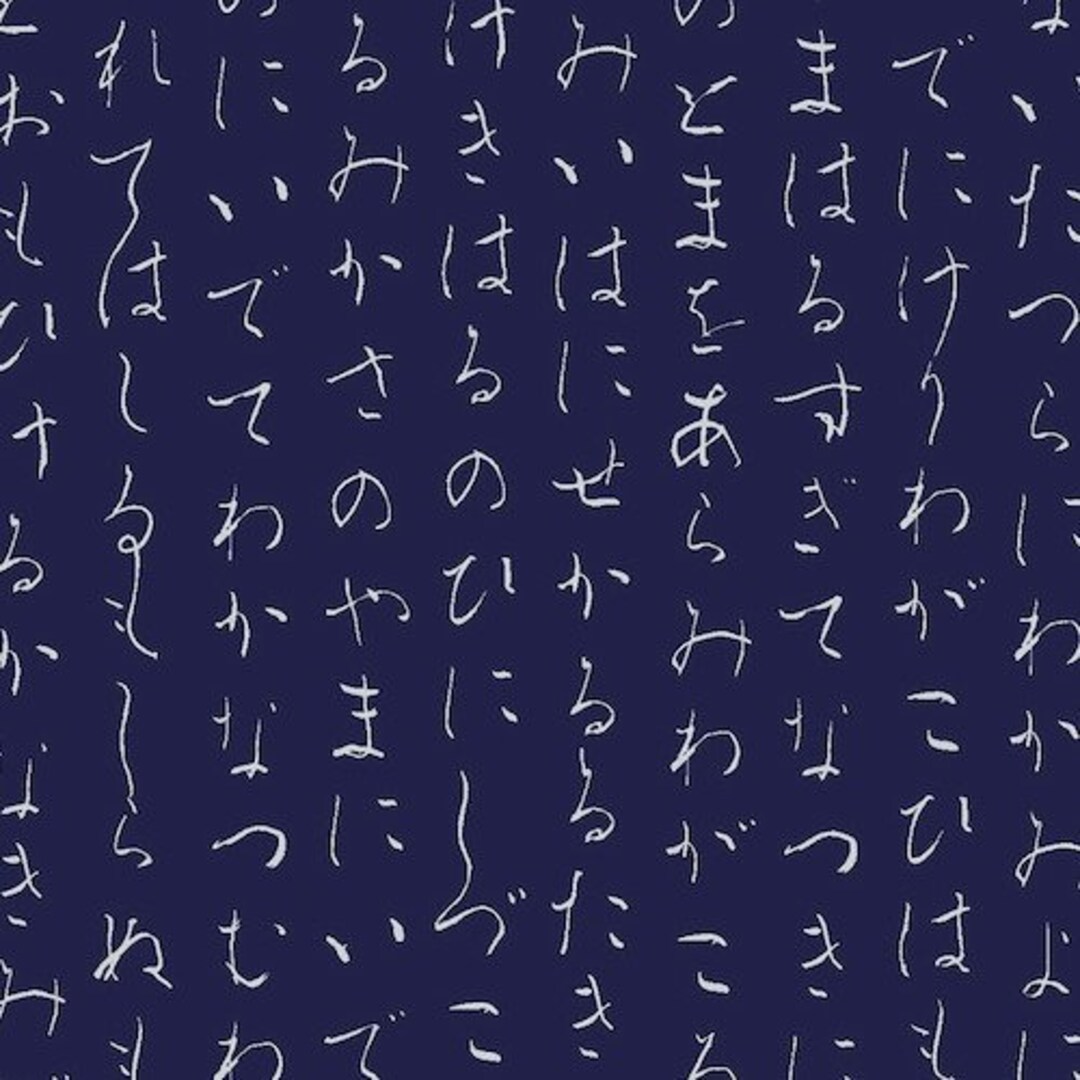 ないたつらにわかみよに
でにけりわがこひはも
まはるすぎてなつきに
のとまをあらみわがころ
みいはにせかるるたき
けきはるのひにしづこ
るみかさのやまにいで
のにいでてわかなつむわ
れてはしるもしらぬも
とおもひけるかなきみ